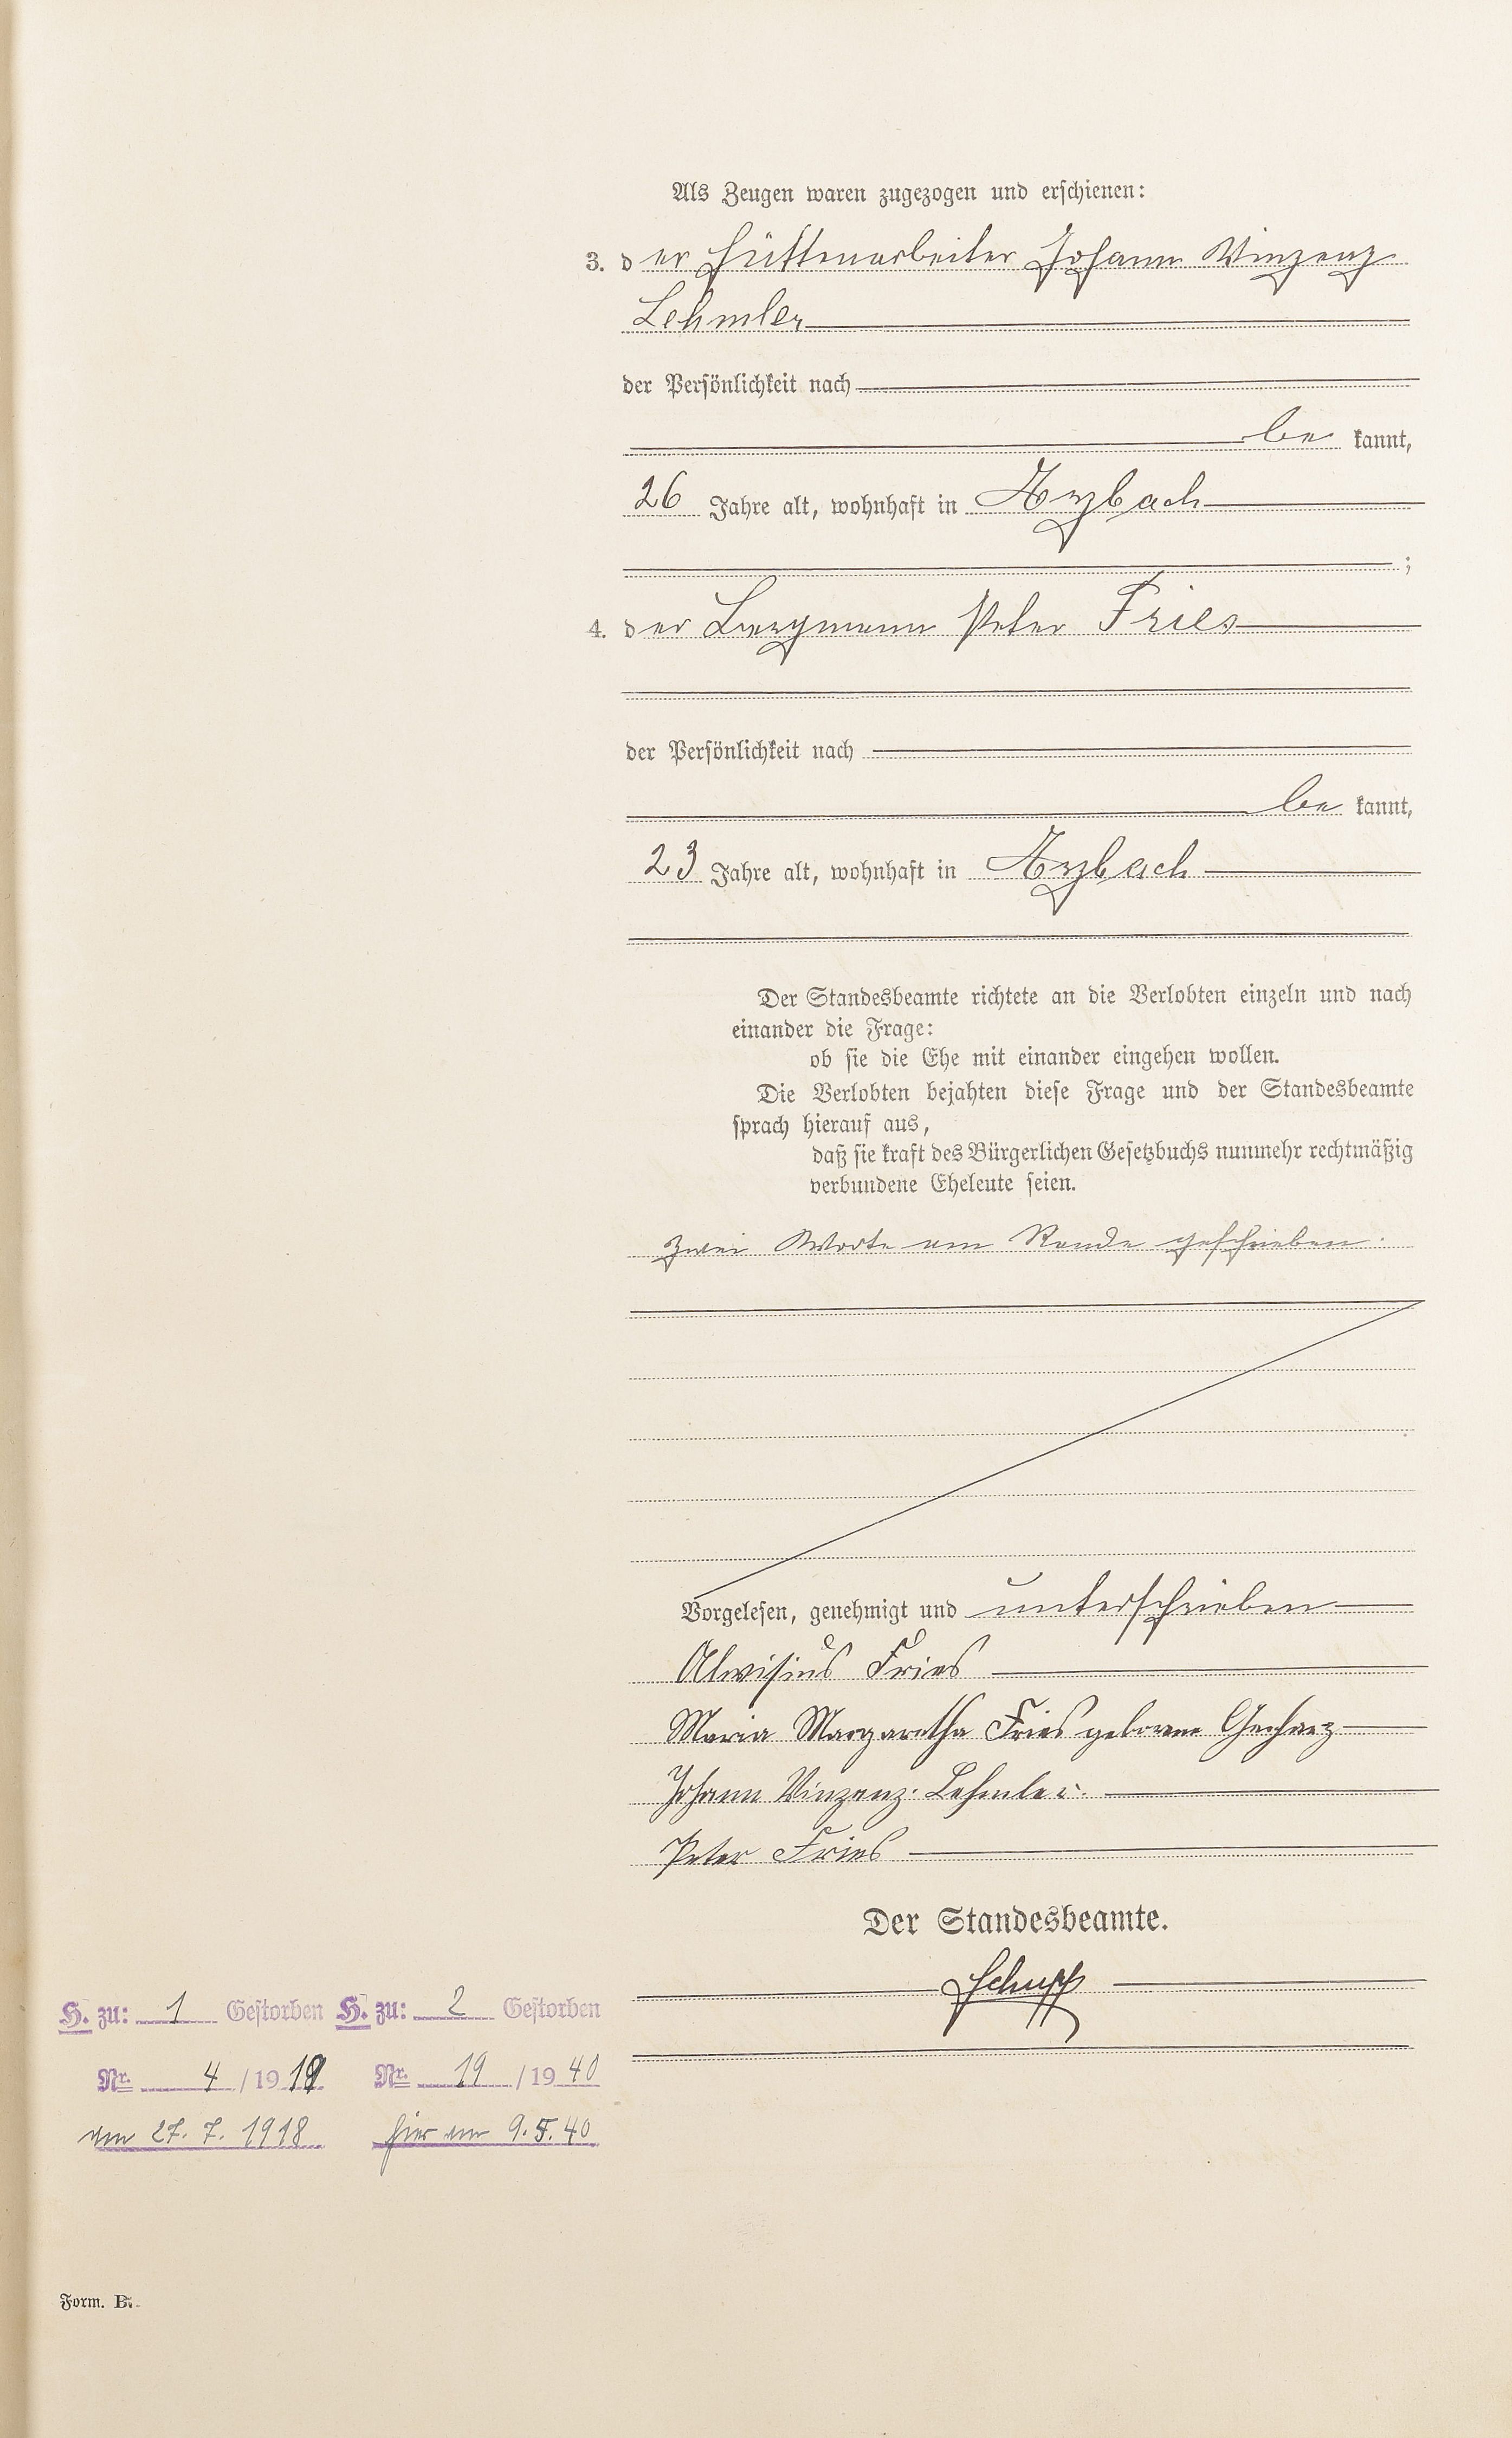 Als Zeugen waren zugezogen und erschienen:
3. der Hüttenarbeiter Johann Vinzenz
Lehmler
der Persönlichkeit nach
be kannt,
26 Jahre alt, wohnhaft in Arzbach
;
4. der Bergmann Peter Fries
der Persönlichkeit nach
be kannt,
23 Jahre alt, wohnhaft in Arzbach
Der Standesbeamte richtete an die Verlobten einzeln und nach
einander die Frage:
ob sie die Ehe mit einander eingehen wollen.
Die Verlobten bejahten diese Frage und der Standesbeamte
sprach hierauf aus,
daß sie kraft des Bürgerlichen Gesetzbuchs nunmehr rechtmäßig
verbundene Eheleute seien.
Zwei Worte am Rande geschrieben.
Vorgelesen, genehmigt und unterschrieben
Aloisius Fries
Maria Margaretha Fries geborene Gerharz
Johann Vinzenz Lehmler.
Peter Fries
Der Standesbeamte.
Schupp
H. zu: 1 Gestorben H. zu: 2 Gestorben
Nr. 4 / 1918 Nr. 19 / 1940
am 27. 7. 1918 hier am 9.5.40
Form. B.